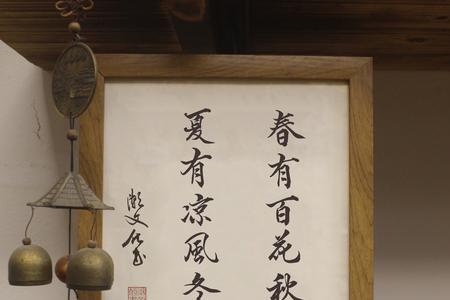 春有百花秋
夏有凉風冬